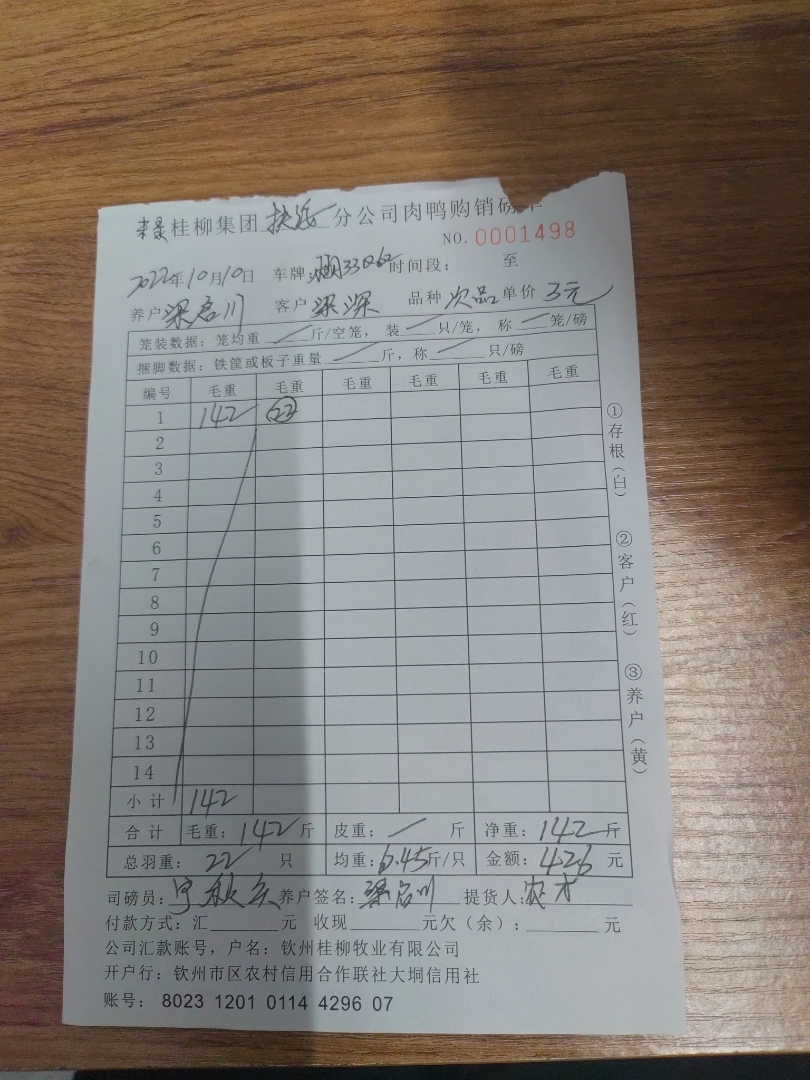 桂柳集团 分公司肉鸭购销磅单
NO. 0001498
2022年10月10日 车牌: 时间段: 至
养户 梁启川 客户 梁深 品种 次品 单价 3元
笼装数据: 笼均重 / 斤/空笼, 装 / 只/笼, 称 / 笼/磅
捆脚数据: 铁筐或板子重量 / 斤, 称 / 只/磅
编号 毛重 毛重 毛重 毛重 毛重 毛重
1 142 22
2
3
4
5
6
7
8
9
10
11
12
13
14
小计 142
合计 毛重: 142 斤 皮重: / 斤 净重: 142 斤
总羽重: 22 只 均重: 6.45 斤/只 金额: 426 元
司磅员: 养户签名: 梁启川 提货人:
付款方式: 汇 元 收现 元 欠(余): 元
公司汇款账号, 户名: 钦州桂柳牧业有限公司
开户行: 钦州市区农村信用合作联社大垌信用社
账号: 8023 1201 0114 4296 07
①存根(白)
②客户(红)
③养户(黄)